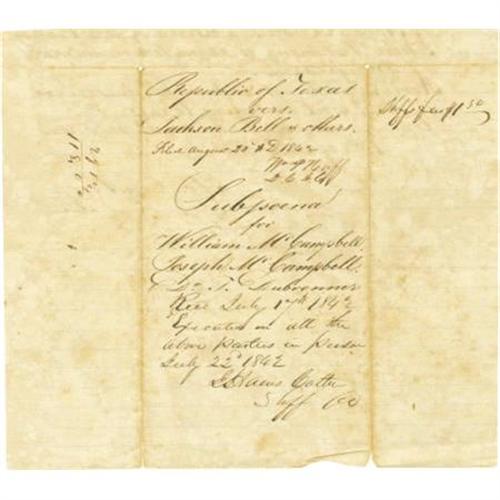 Republic of Texas
vers.
Jackson Bell & others.
Filed August 20th AD 1842
Subpoena
for
William McCampbell.
Joseph McCampbell.
Rec'd July 17th 1842
Executed on all the
above parties in person
July 22d 1842
Shff
Shffs fee $1.50